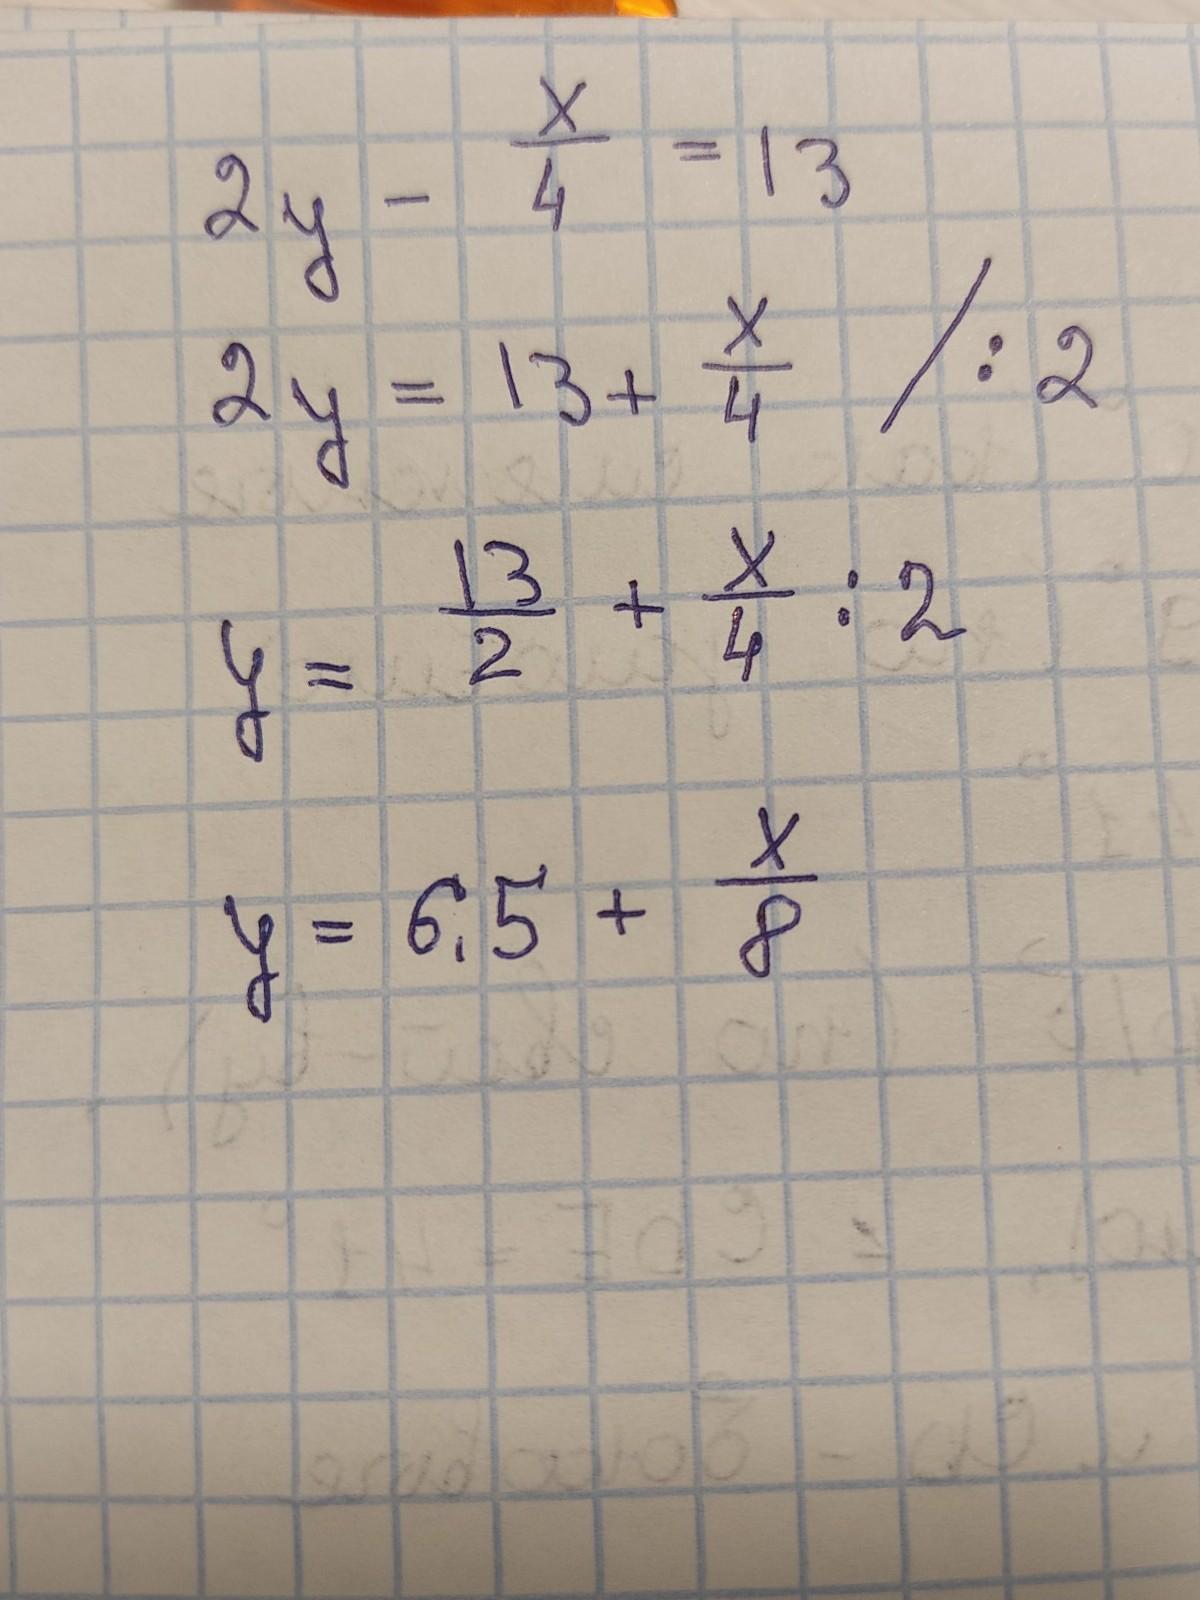 2y - x/4 = 13
2y = 13 + x/4 / : 2
y = 13/2 + x/4 : 2
y = 6,5 + x/8